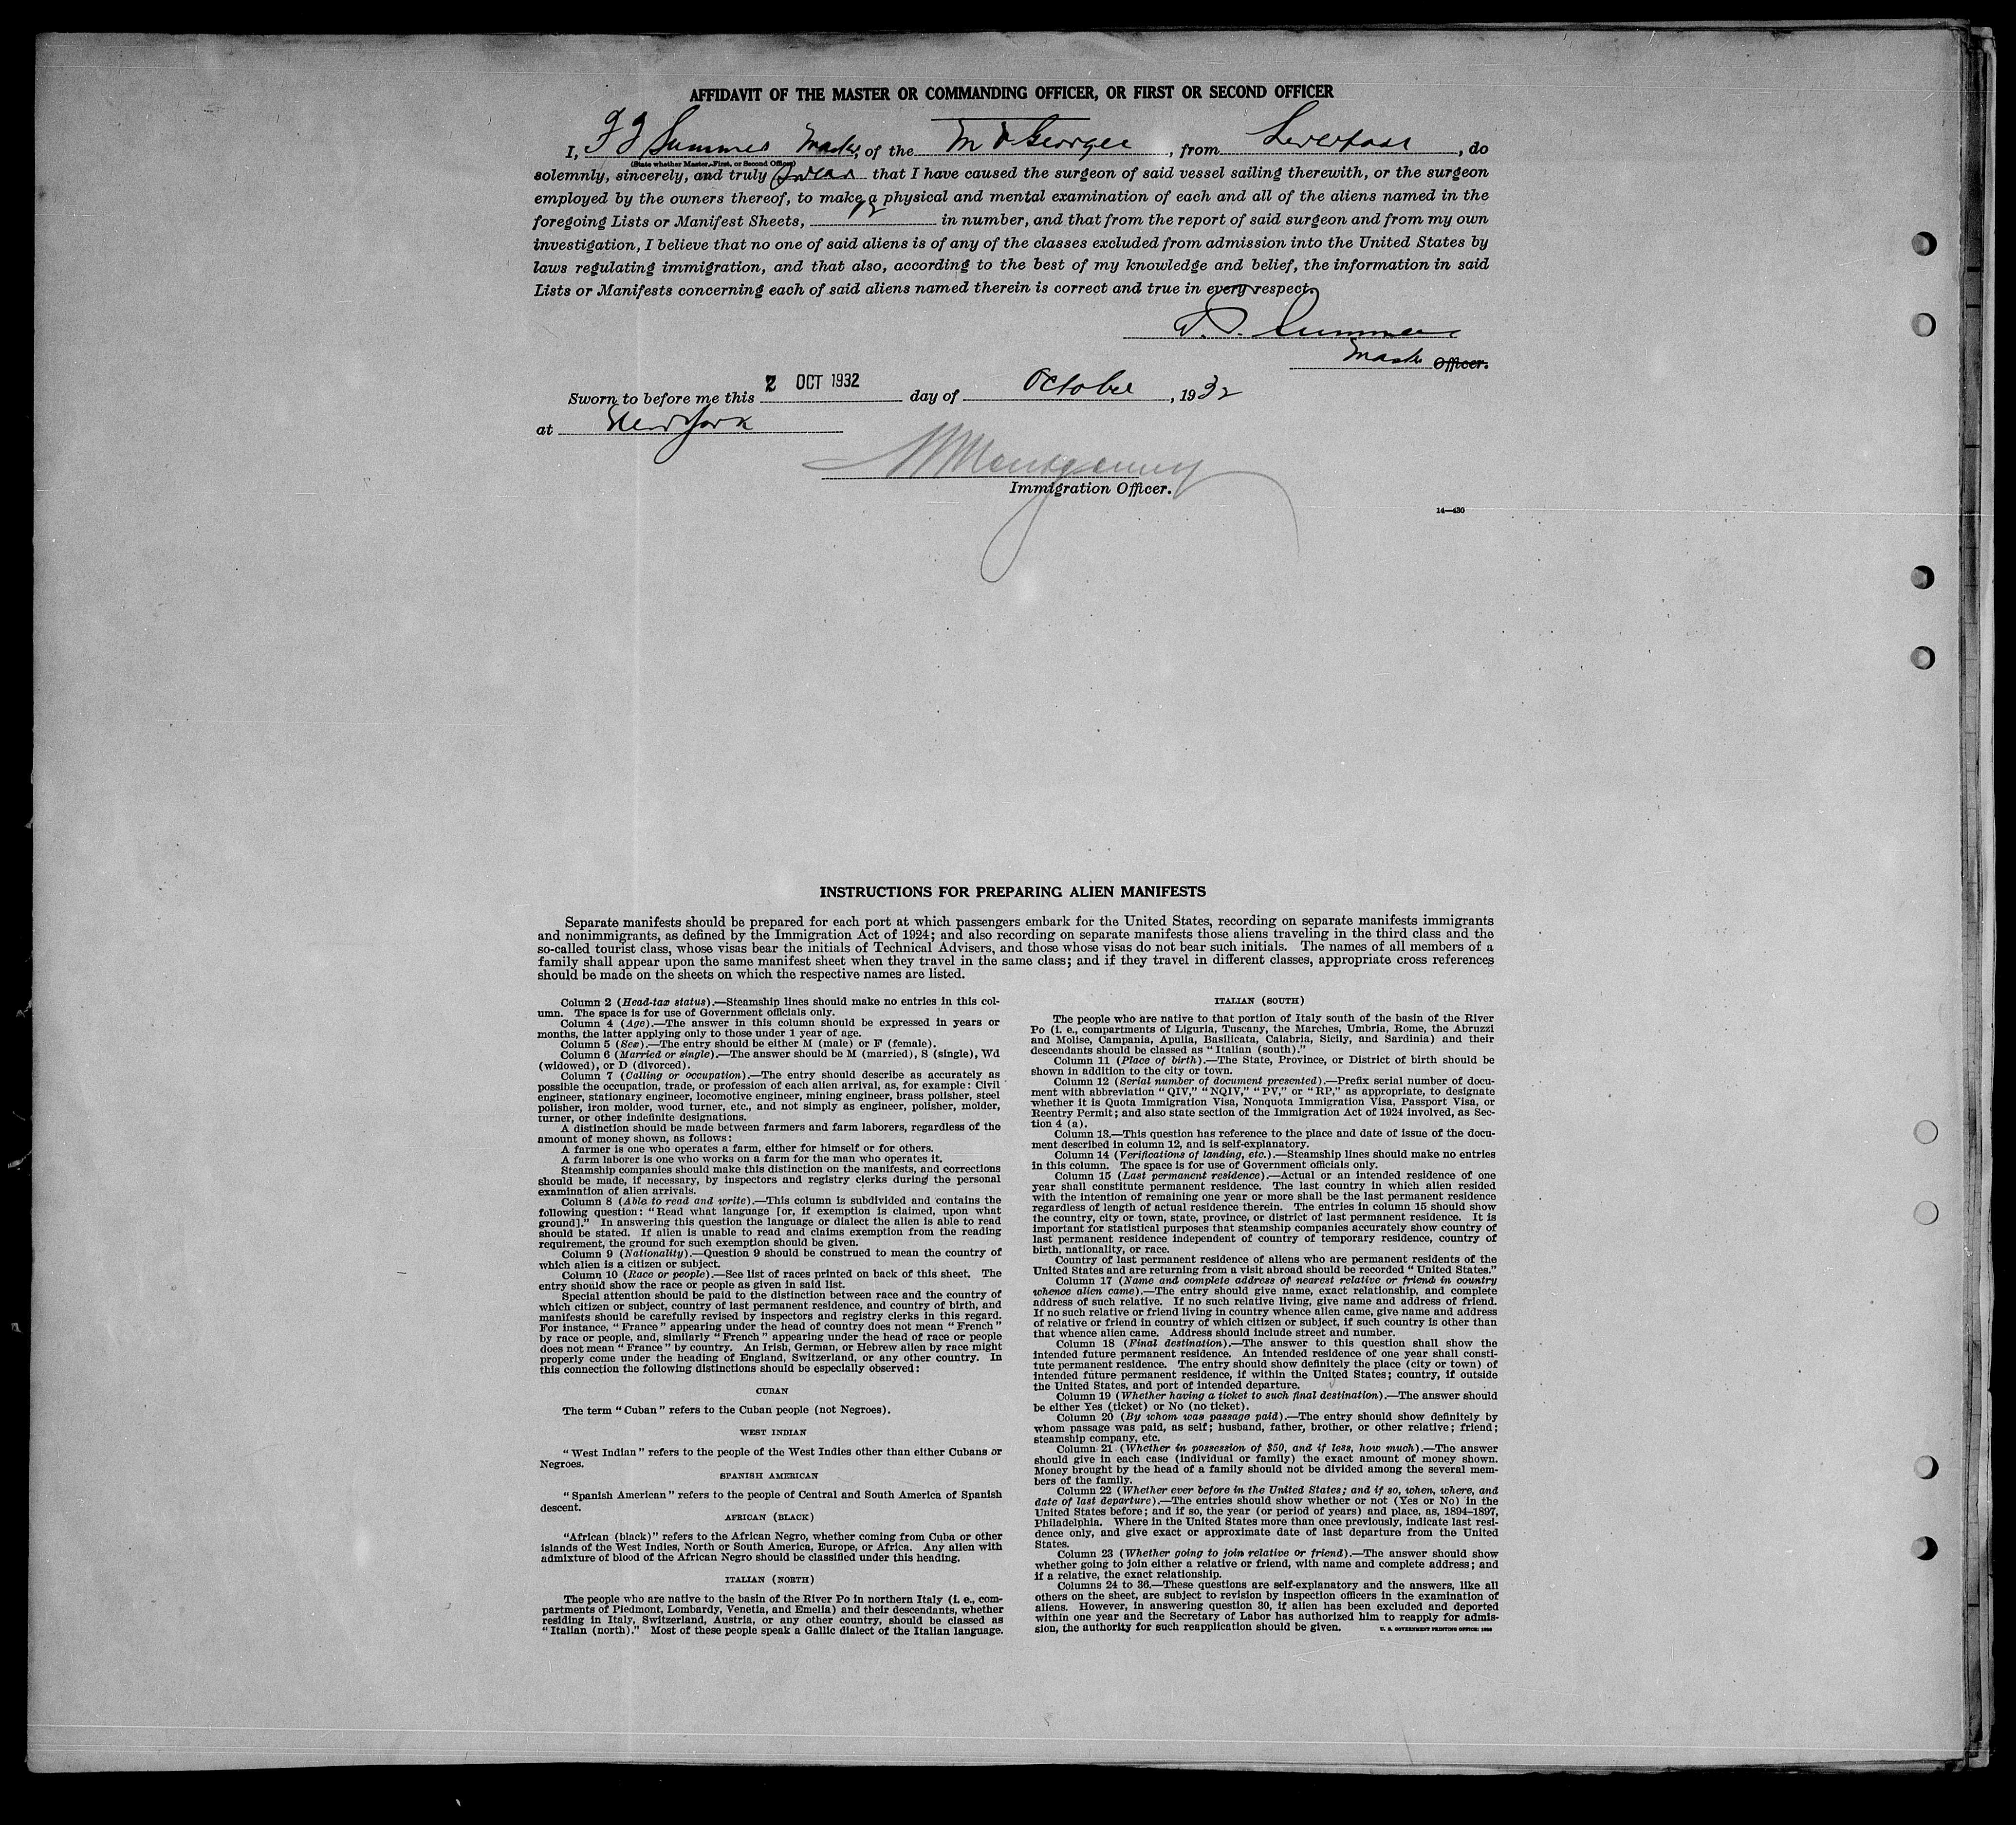 AFFIDAVIT OF THE MASTER OR COMMANDING OFFICER, OR FIRST OR SECOND OFFICER
I, F J Summers Master, of the M V Georgic, from Liverpool, do
(State whether Master, First, or Second Officer)
solemnly, sincerely, and truly swear that I have caused the surgeon of said vessel sailing therewith, or the surgeon
employed by the owners thereof, to make a physical and mental examination of each and all of the aliens named in the
foregoing Lists or Manifest Sheets, in number, and that from the report of said surgeon and from my own
investigation, I believe that no one of said aliens is of any of the classes excluded from admission into the United States by
laws regulating immigration, and that also, according to the best of my knowledge and belief, the information in said
Lists or Manifests concerning each of said aliens named therein is correct and true in every respect.
Summers
Master Officer.
Sworn to before me this 2 OCT 1932 day of October, 1932
at New York
Montgomery
Immigration Officer.
14—430
INSTRUCTIONS FOR PREPARING ALIEN MANIFESTS
Separate manifests should be prepared for each port at which passengers embark for the United States, recording on separate manifests immigrants
and nonimmigrants, as defined by the Immigration Act of 1924; and also recording on separate manifests those aliens traveling in the third class and the
so-called tourist class, whose visas bear the initials of Technical Advisers, and those whose visas do not bear such initials. The names of all members of a
family shall appear upon the same manifest sheet when they travel in the same class; and if they travel in different classes, appropriate cross references
should be made on the sheets on which the respective names are listed.
Column 2 (Head-tax status).—Steamship lines should make no entries in this col-
umn. The space is for use of Government officials only.
Column 4 (Age).—The answer in this column should be expressed in years or
months, the latter applying only to those under 1 year of age.
Column 5 (Sex).—The entry should be either M (male) or F (female).
Column 6 (Married or single).—The answer should be M (married), S (single), Wd
(widowed), or D (divorced).
Column 7 (Calling or occupation).—The entry should describe as accurately as
possible the occupation, trade, or profession of each alien arrival, as, for example: Civil
engineer, stationary engineer, locomotive engineer, mining engineer, brass polisher, steel
polisher, iron molder, wood turner, etc., and not simply as engineer, polisher, molder,
turner, or other indefinite designations.
A distinction should be made between farmers and farm laborers, regardless of the
amount of money shown, as follows:
A farmer is one who operates a farm, either for himself or for others.
A farm laborer is one who works on a farm for the man who operates it.
Steamship companies should make this distinction on the manifests, and corrections
should be made, if necessary, by inspectors and registry clerks during the personal
examination of alien arrivals.
Column 8 (Able to read and write).—This column is subdivided and contains the
following question: "Read what language [or, if exemption is claimed, upon what
ground]." In answering this question the language or dialect the alien is able to read
should be stated. If alien is unable to read and claims exemption from the reading
requirement, the ground for such exemption should be given.
Column 9 (Nationality).—Question 9 should be construed to mean the country of
which alien is a citizen or subject.
Column 10 (Race or people).—See list of races printed on back of this sheet. The
entry should show the race or people as given in said list.
Special attention should be paid to the distinction between race and the country of
which citizen or subject, country of last permanent residence, and country of birth, and
manifests should be carefully revised by inspectors and registry clerks in this regard.
For instance, "France" appearing under the head of country does not mean "French"
by race or people, and, similarly "French" appearing under the head of race or people
does not mean "France" by country. An Irish, German, or Hebrew alien by race might
properly come under the heading of England, Switzerland, or any other country. In
this connection the following distinctions should be especially observed:
CUBAN
The term "Cuban" refers to the Cuban people (not Negroes).
WEST INDIAN
"West Indian" refers to the people of the West Indies other than either Cubans or
Negroes.
SPANISH AMERICAN
"Spanish American" refers to the people of Central and South America of Spanish
descent.
AFRICAN (BLACK)
"African (black)" refers to the African Negro, whether coming from Cuba or other
islands of the West Indies, North or South America, Europe, or Africa. Any alien with
admixture of blood of the African Negro should be classified under this heading.
ITALIAN (NORTH)
The people who are native to the basin of the River Po in northern Italy (i. e., com-
partments of Piedmont, Lombardy, Venetia, and Emelia) and their descendants, whether
residing in Italy, Switzerland, Austria, or any other country, should be classed as
"Italian (north)." Most of these people speak a Gallic dialect of the Italian language.
ITALIAN (SOUTH)
The people who are native to that portion of Italy south of the basin of the River
Po (i. e., compartments of Liguria, Tuscany, the Marches, Umbria, Rome, the Abruzzi
and Molise, Campania, Apulia, Basilicata, Calabria, Sicily, and Sardinia) and their
descendants should be classed as "Italian (south)."
Column 11 (Place of birth).—The State, Province, or District of birth should be
shown in addition to the city or town.
Column 12 (Serial number of document presented).—Prefix serial number of docu-
ment with abbreviation "QIV," "NQIV," "PV," or "RP," as appropriate, to designate
whether it is Quota Immigration Visa, Nonquota Immigration Visa, Passport Visa, or
Reentry Permit; and also state section of the Immigration Act of 1924 involved, as Sec-
tion 4 (a).
Column 13.—This question has reference to the place and date of issue of the docu-
ment described in column 12, and is self-explanatory.
Column 14 (Verifications of landing, etc.).—Steamship lines should make no entries
in this column. The space is for use of Government officials only.
Column 15 (Last permanent residence).—Actual or an intended residence of one
year shall constitute permanent residence. The last country in which alien resided
with the intention of remaining one year or more shall be the last permanent residence
regardless of length of actual residence therein. The entries in column 15 should show
the country, city or town, state, province, or district of last permanent residence. It is
important for statistical purposes that steamship companies accurately show country of
last permanent residence independent of country of temporary residence, country of
birth, nationality, or race.
Country of last permanent residence of aliens who are permanent residents of the
United States and are returning from a visit abroad should be recorded "United States."
Column 17 (Name and complete address of nearest relative or friend in country
whence alien came).—The entry should give name, exact relationship, and complete
address of such relative. If no such relative living, give name and address of friend.
If no such relative or friend living in country whence alien came, give name and address
of relative or friend in country of which citizen or subject, if such country is other than
that whence alien came. Address should include street and number.
Column 18 (Final destination).—The answer to this question shall show the
intended future permanent residence. An intended residence of one year shall consti-
tute permanent residence. The entry should show definitely the place (city or town) of
intended future permanent residence, if within the United States; country, if outside
the United States, and port of intended departure.
Column 19 (Whether having a ticket to such final destination).—The answer should
be either Yes (ticket) or No (no ticket).
Column 20 (By whom was passage paid).—The entry should show definitely by
whom passage was paid, as self; husband, father, brother, or other relative; friend;
steamship company, etc.
Column 21 (Whether in possession of $50, and if less, how much).—The answer
should give in each case (individual or family) the exact amount of money shown.
Money brought by the head of a family should not be divided among the several mem-
bers of the family.
Column 22 (Whether ever before in the United States; and if so, when, where, and
date of last departure).—The entries should show whether or not (Yes or No) in the
United States before; and if so, the year (or period of years) and place, as, 1894–1897,
Philadelphia. Where in the United States more than once previously, indicate last resi-
dence only, and give exact or approximate date of last departure from the United
States.
Column 23 (Whether going to join relative or friend).—The answer should show
whether going to join either a relative or friend, with name and complete address; and
if a relative, the exact relationship.
Columns 24 to 36.—These questions are self-explanatory and the answers, like all
others on the sheet, are subject to revision by inspection officers in the examination of
aliens. However, in answering question 30, if alien has been excluded and deported
within one year and the Secretary of Labor has authorized him to reapply for admis-
sion, the authority for such reapplication should be given.
U. S. GOVERNMENT PRINTING OFFICE: